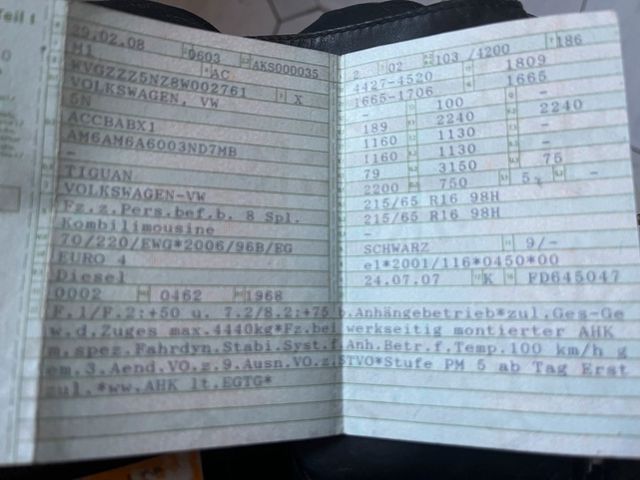 Teil I
29.02.08 0603 AKS000035
M1 AC
WVGZZZ5NZ8W002761
VOLKSWAGEN, VW X
5N
ACCBABX1
AM6AM6A6003ND7MB
-
TIGUAN
VOLKSWAGEN-VW
Fz.z.Pers.bef.b. 8 Spl.
Kombilimousine
70/220/EWG*2006/96B/EG
EURO 4
Diesel
0002 0462 1968
2 02 103 /4200 186
4427-4520 1809
1665-1706 1665
- 100 -
189 2240 2240
1160 1130 -
1160 1130 -
79 3150 75
2200 750 5 -
215/65 R16 98H
215/65 R16 98H
-
SCHWARZ 9/-
e1*2001/116*0450*00
24.07.07 K FD645047
F.1/F.2:+50 u. 7.2/8.2:+75 b.Anhängebetrieb*zul.Ges-Ge
w.d.Zuges max.4440kg*Fz.bei werkseitig montierter AHK
m.spez.Fahrdyn.Stabi.Syst.f.Anh.Betr.f.Temp.100 km/h g
em.3.Aend.VO.z.9.Ausn.VO.z.STVO*Stufe PM 5 ab Tag Erst
zul.*ww.AHK lt.EGTG*